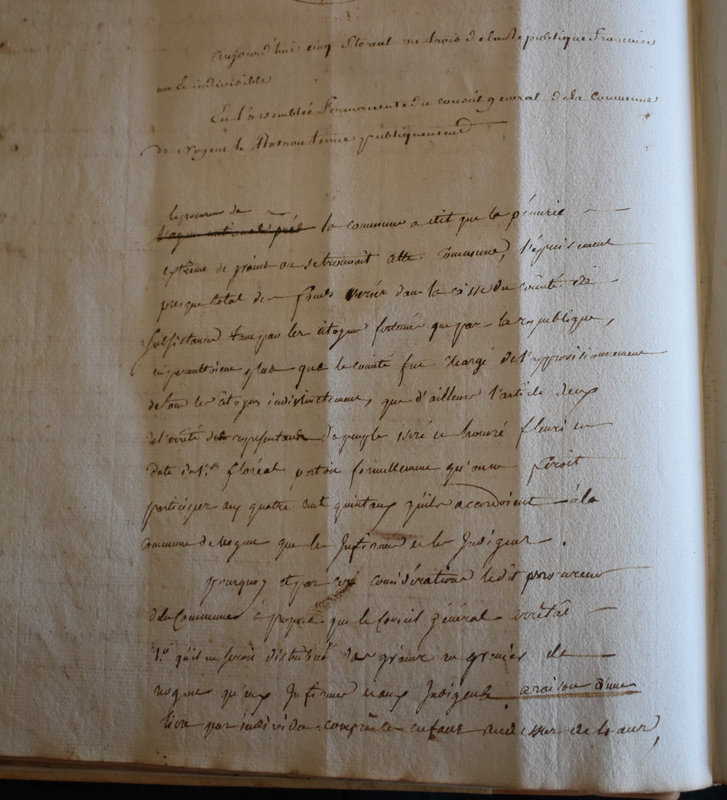 Aujourd'hui cinq floreal an trois de la Republique francaise
une et indivisible
En l'assemblée Permanente du conseil general de la Commune
de Nogent le Rotrou tenue publiquement
le procureur de
la commune a dit que la pénurie
extrême de grains ou se trouvoit cette Commune, l'épuisement
presque total des fonds versés dans la caisse du comité de
subsistances tant par les citoyens fortunés que par la republique,
ne permettoient plus que le comité fut chargé de l'approvisionnement
de tous les citoyens indistinctement, que d'ailleurs l'article deux
de l'arrêté des representans du peuple et fleuri en
date du 1er floréal portoit formellement qu'on ne feroit
participer aux quatre cent quintaux qu'ils accordoient à la
Commune de Nogent que les Infirmes et les Indigens.
pourquoy et par ces considérations ledit procureur
de la Commune a proposé que le Conseil général arrêtât
1.° qu'il ne seroit distribué des grains au grenier de
Nogent qu'aux Infirmes et aux Indigens a raison d'une
livre par individu compris les enfans au dessus de ans,